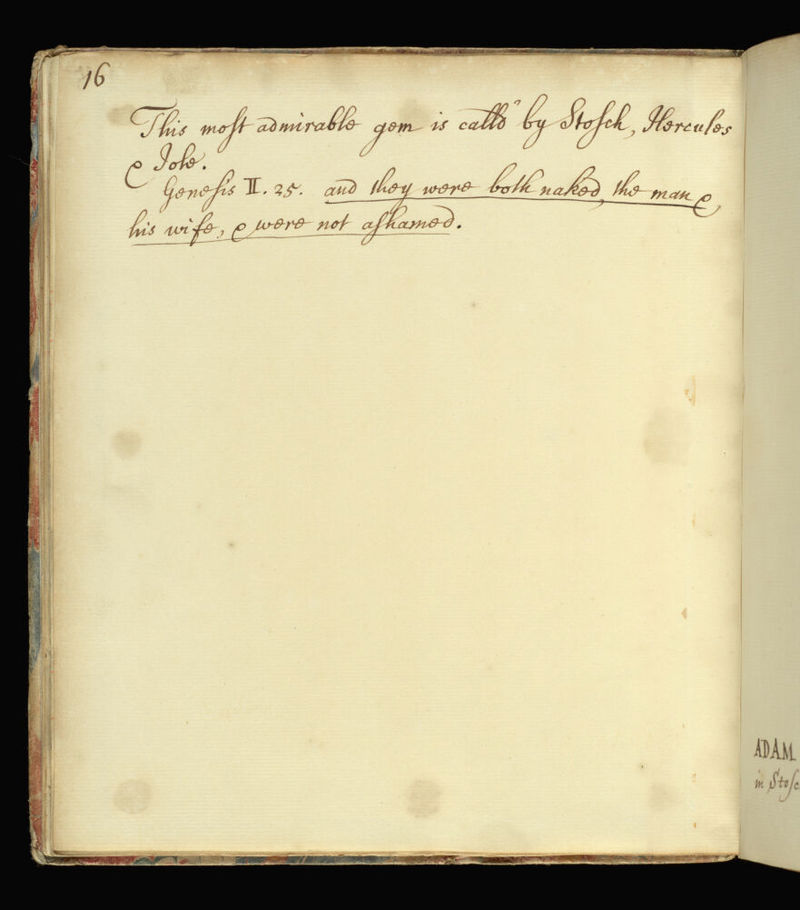 16
This most admirable gem is calld by Stosch, Hercules
& Iole.
Genesis II. 25. and they were both naked, the man &
his wife, & were not ashamed.
ADAM
in Stosc